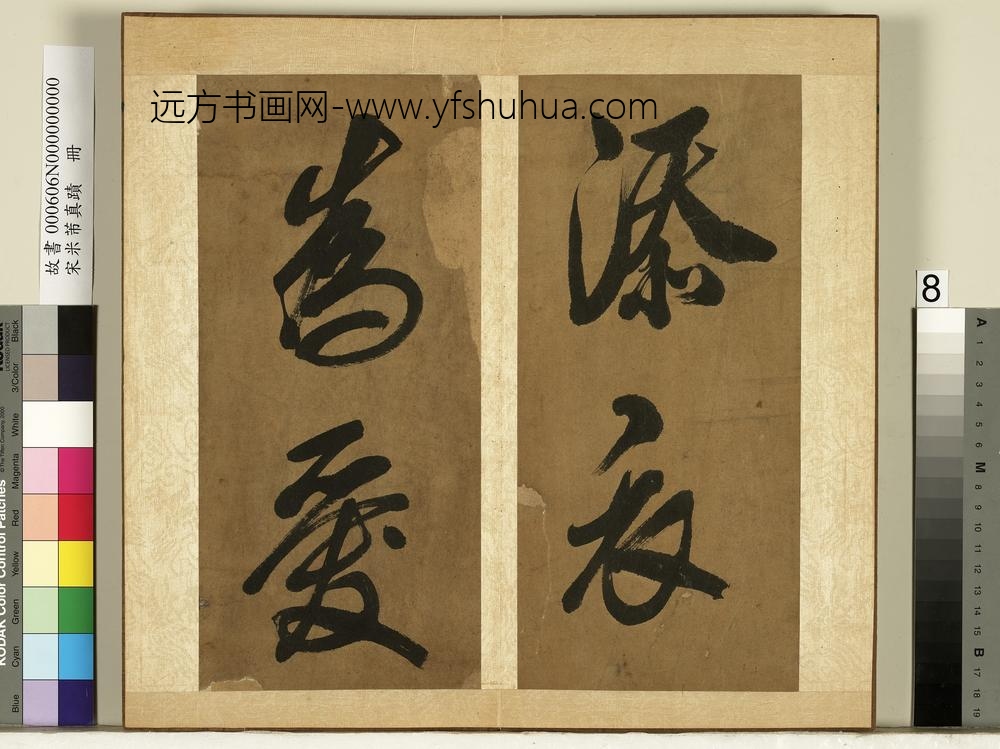 远方书画网-www.yfshuhua.com
故書000606N000000000
宋米芾真蹟 冊
添衣
為愛
8
Kodak
LICENSED PRODUCT
KODAK Color Control Patches
© The Tiffen Company, 2000
Blue
Cyan
Green
Yellow
Red
Magenta
White
3/Color
Black
A
1
2
3
4
5
6
M
8
9
10
11
12
13
14
15
B
17
18
19